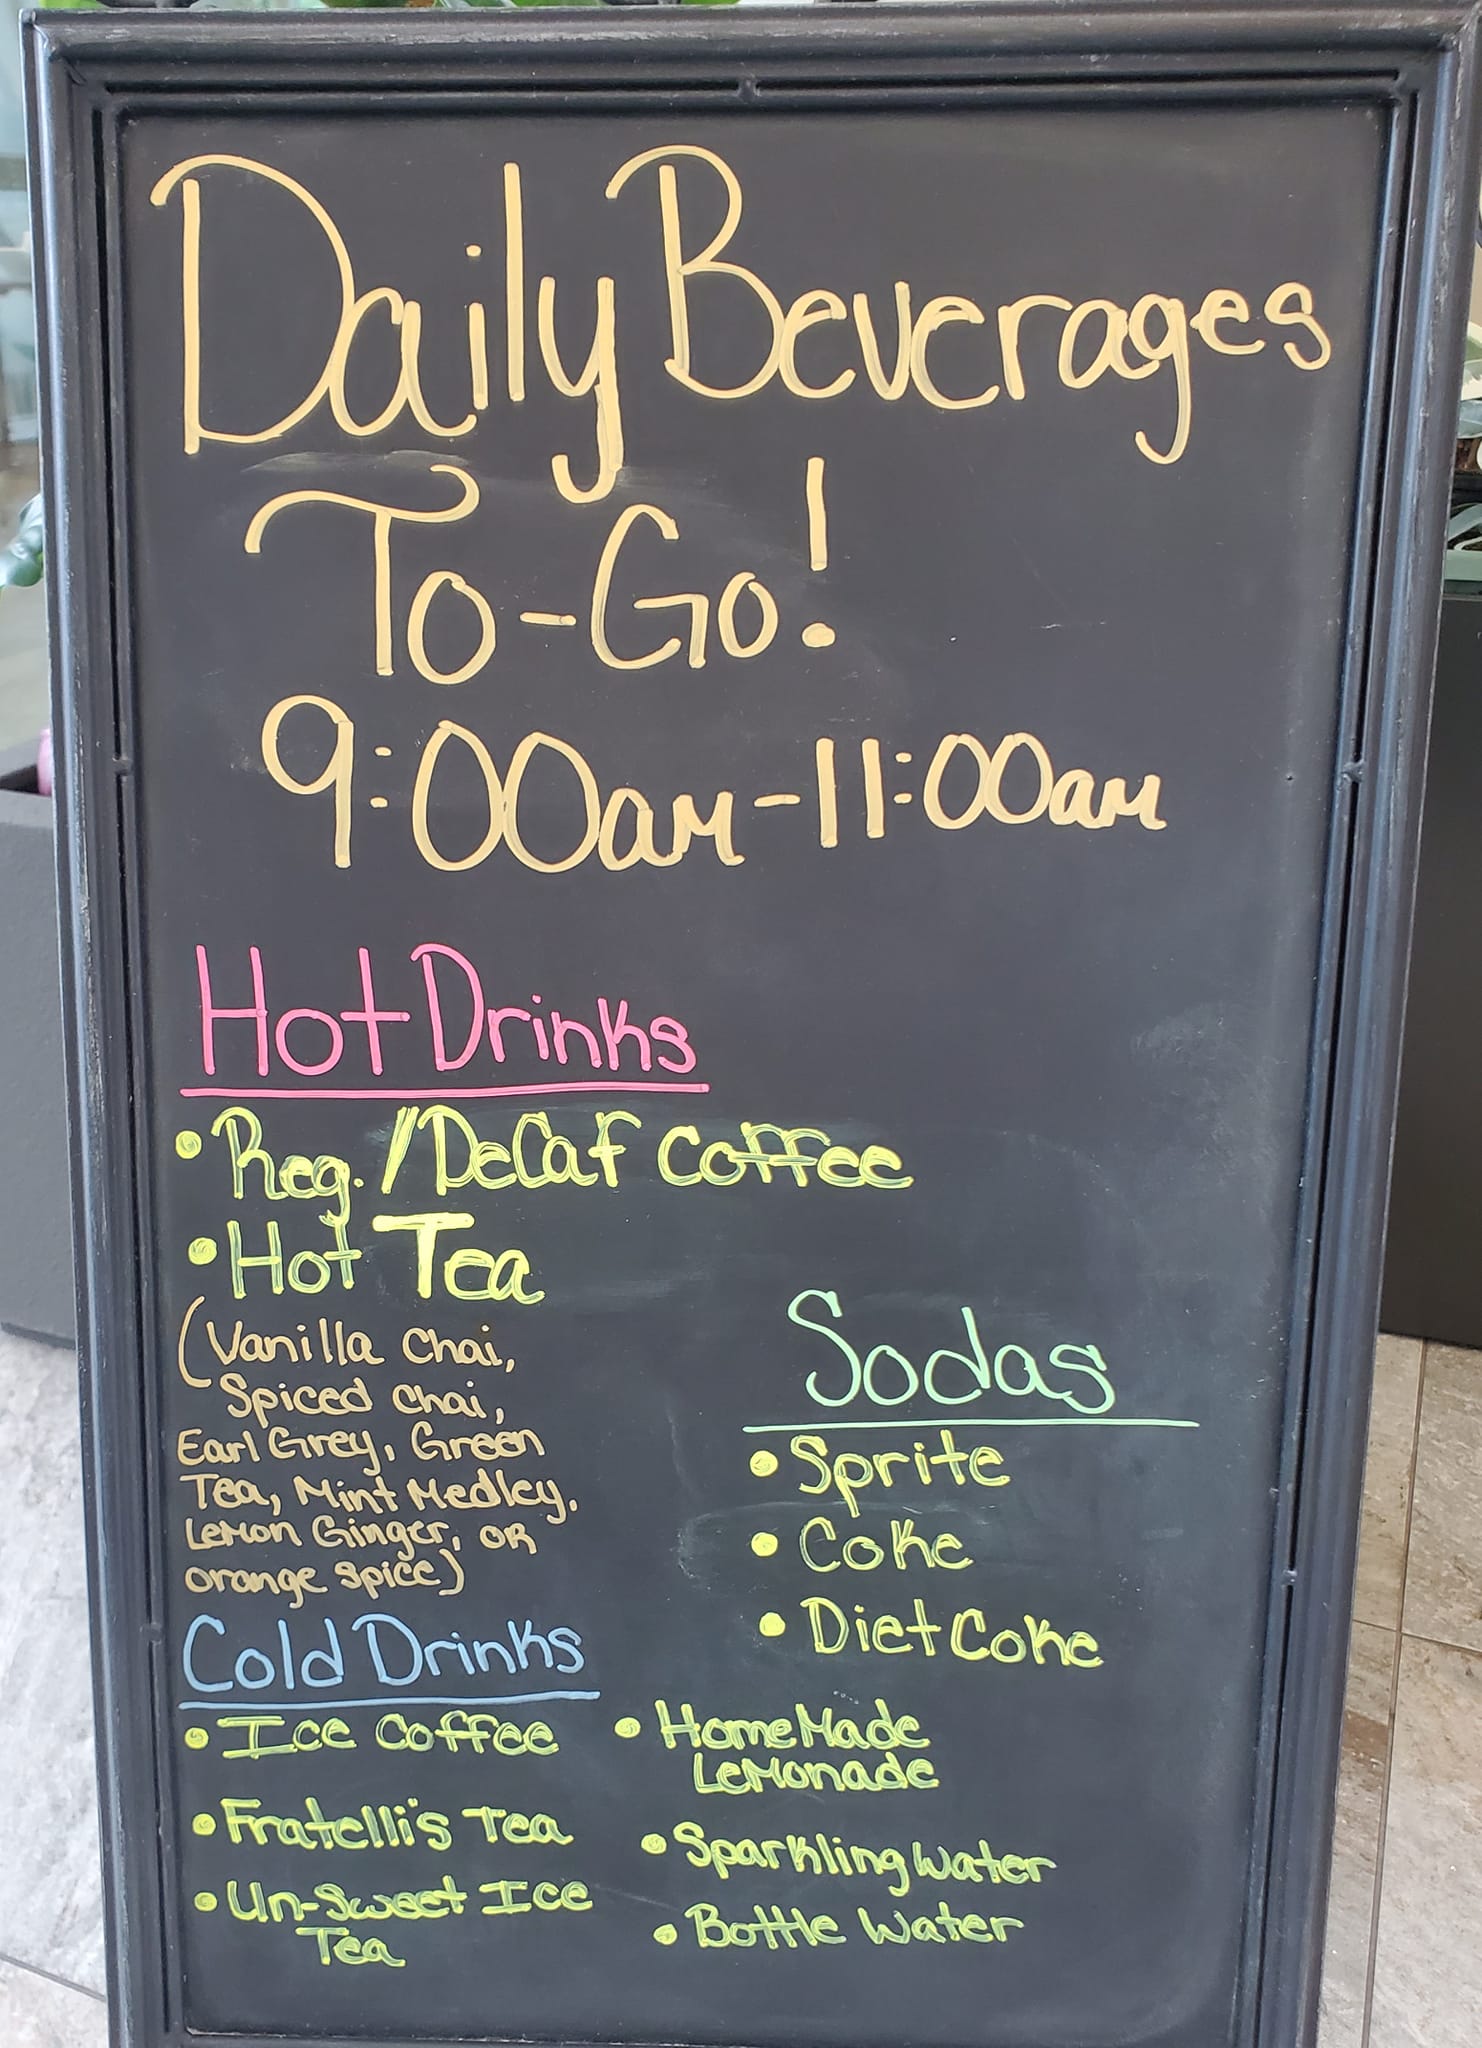 Daily Beverages
To-Go!
9:00am-11:00am
Hot Drinks
• Reg./DeCaf Coffee
• Hot Tea
(Vanilla Chai,
Spiced Chai,
Earl Grey, Green
Tea, Mint Medley,
Lemon Ginger, or
orange spice)
Sodas
• Sprite
• Coke
• Diet Coke
Cold Drinks
• Ice Coffee
• Fratelli's Tea
• Un-Sweet Ice
Tea
• HomeMade
Lemonade
• Sparkling Water
• Bottle Water